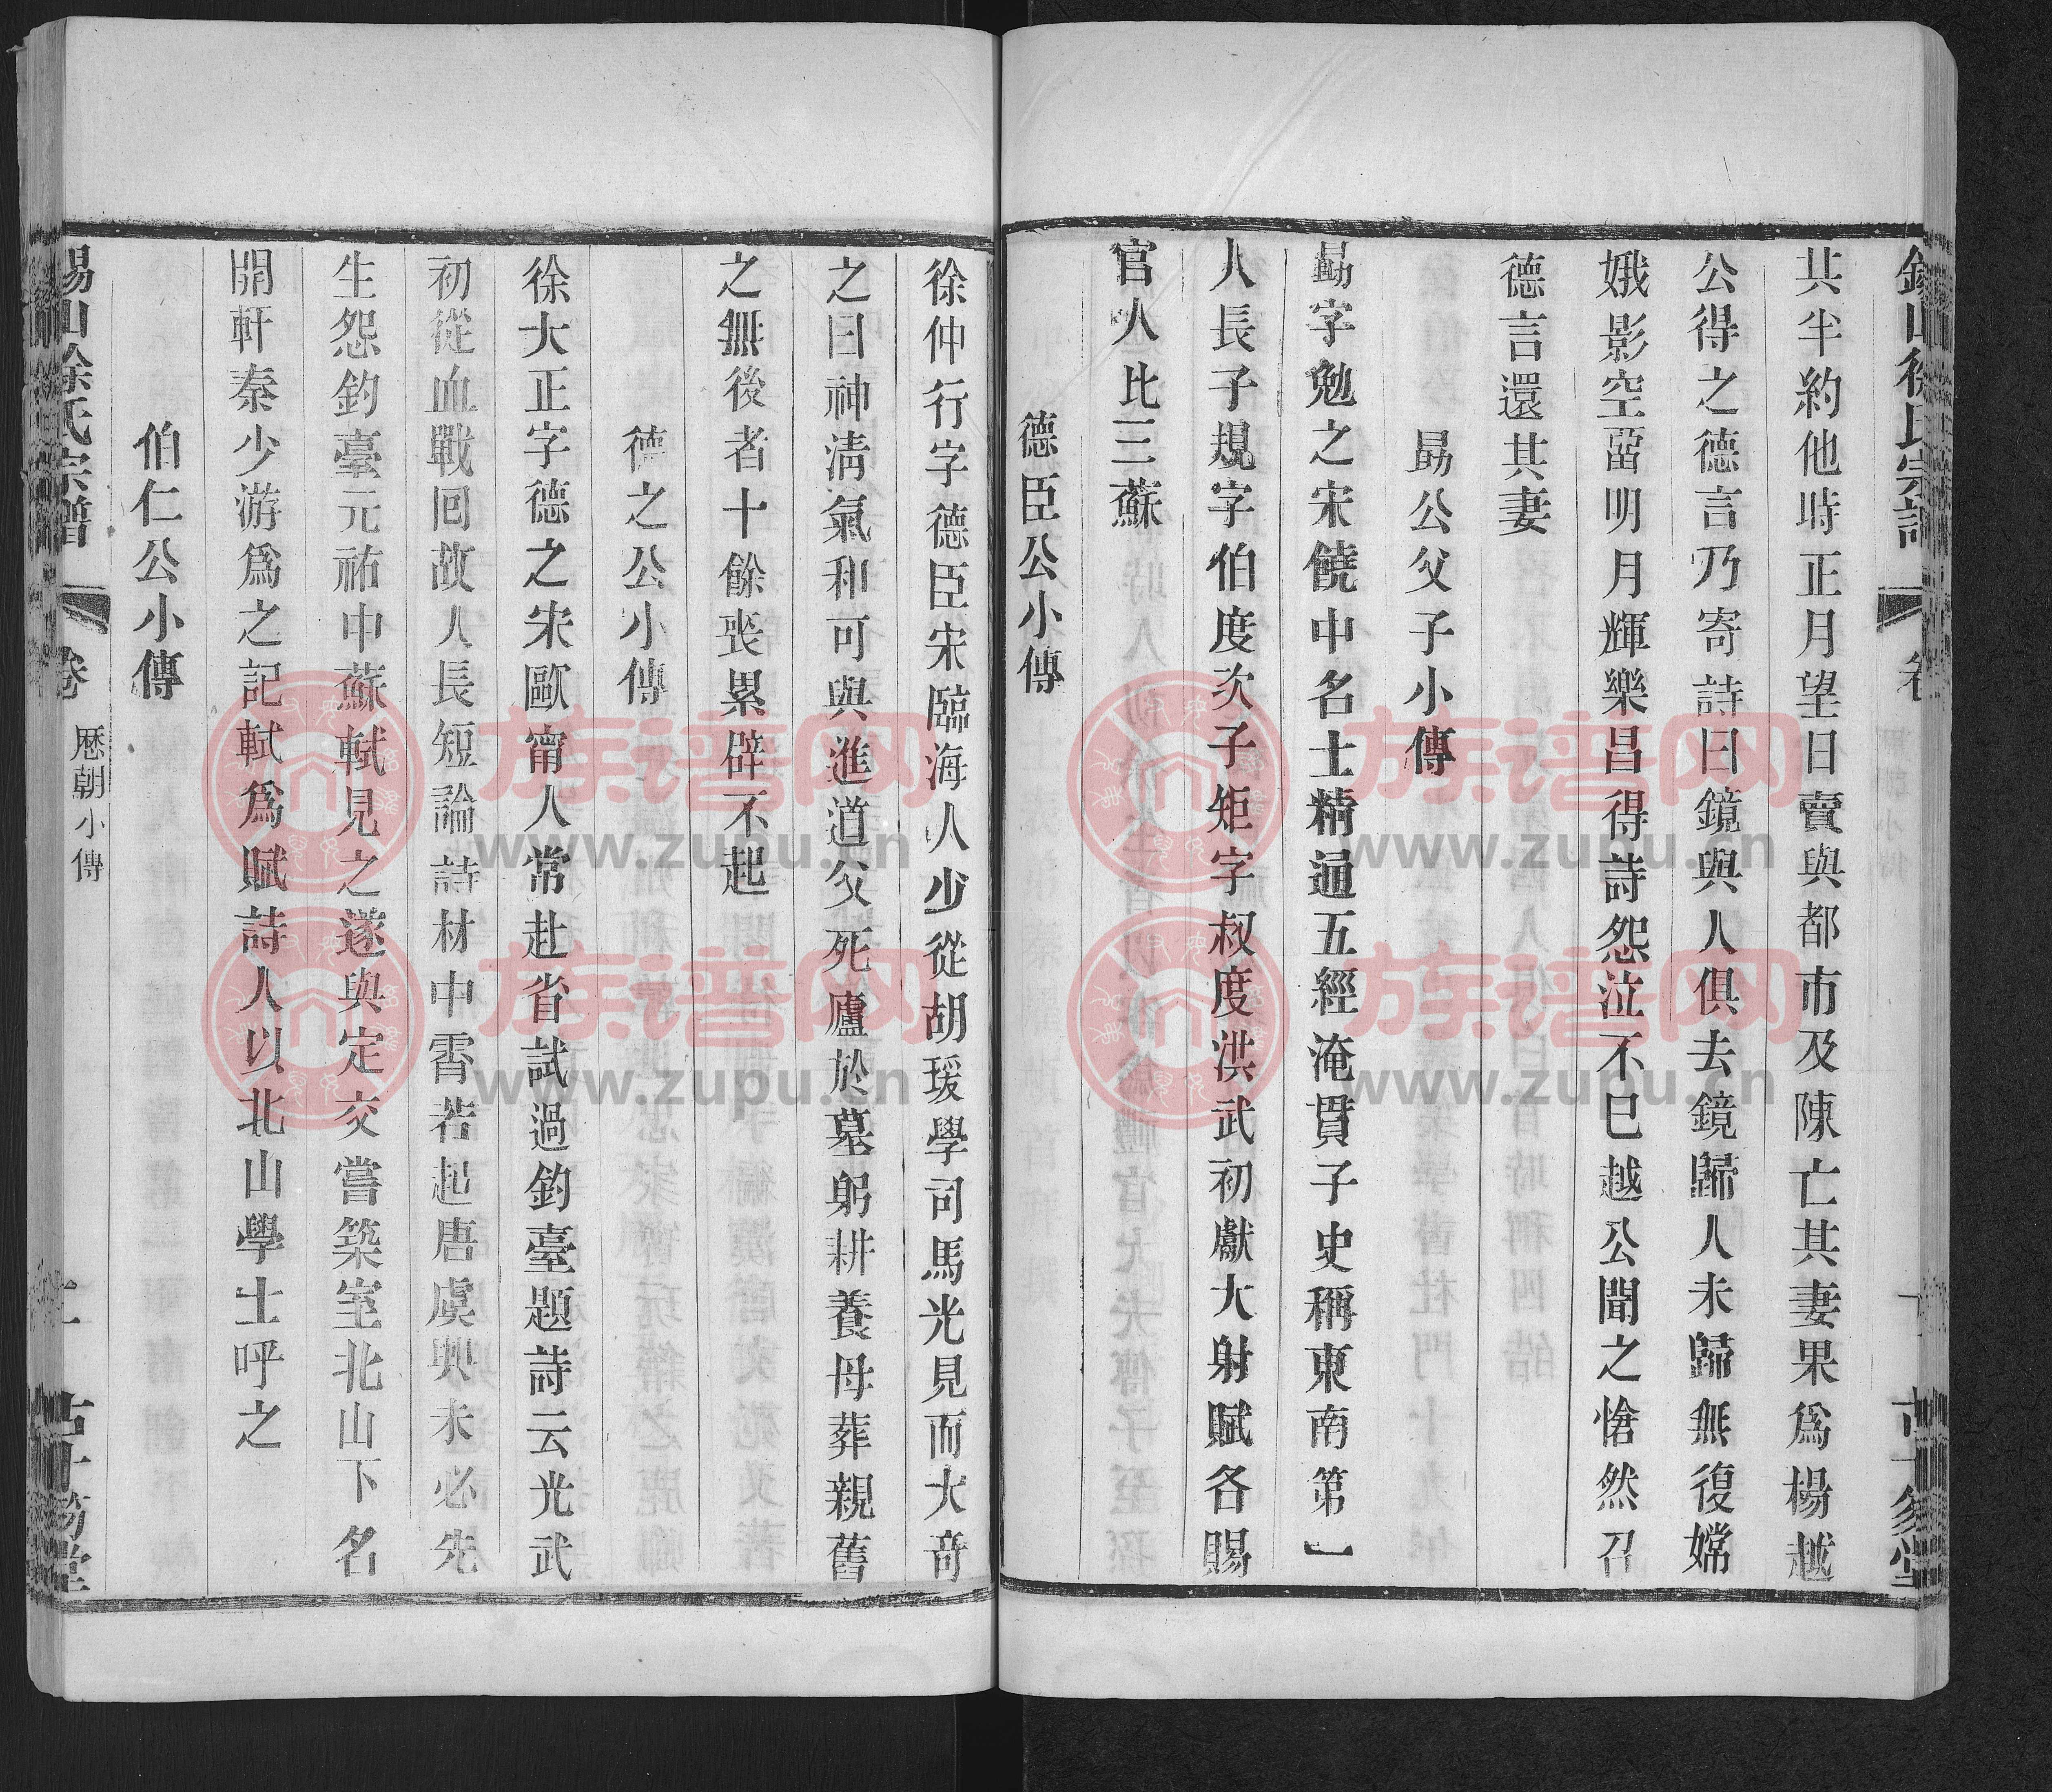 共半約他時正月望日賣與都市及陳亡其妻果爲楊越
公得之德言乃寄詩曰鏡與人俱去鏡歸人未歸無復嫦
娥影空畱明月輝樂昌得詩怨泣不已越公聞之愴然召
德言還其妻
勗公父子小傳
勗字勉之宋饒中名士精通五經淹貫子史稱東南第一
人長子規字伯度次子矩字叔度洪武初獻大射賦各賜
官人比三蘇
德臣公小傳
徐仲行字德臣宋臨海人少從胡瑗學司馬光見而大奇
之曰神淸氣和可與進道父死廬於墓躬耕養母葬親舊
之無後者十餘喪累辟不起
德之公小傳
徐大正字德之宋歐甯人常赴省試過釣臺題詩云光武
初從血戰回故人長短論詩材中霄若起唐虞興未必先
生怨釣臺元祐中蘇軾見之遂與定交嘗築室北山下名
開軒秦少游爲之記軾爲賦詩人以北山學士呼之
伯仁公小傳
錫山徐氏宗譜 卷 歷朝小傳 十一 古十笏堂
族谱网
www.zupu.cn
族谱网
www.zupu.cn
族谱网
www.zupu.cn
族谱网
www.zupu.cn